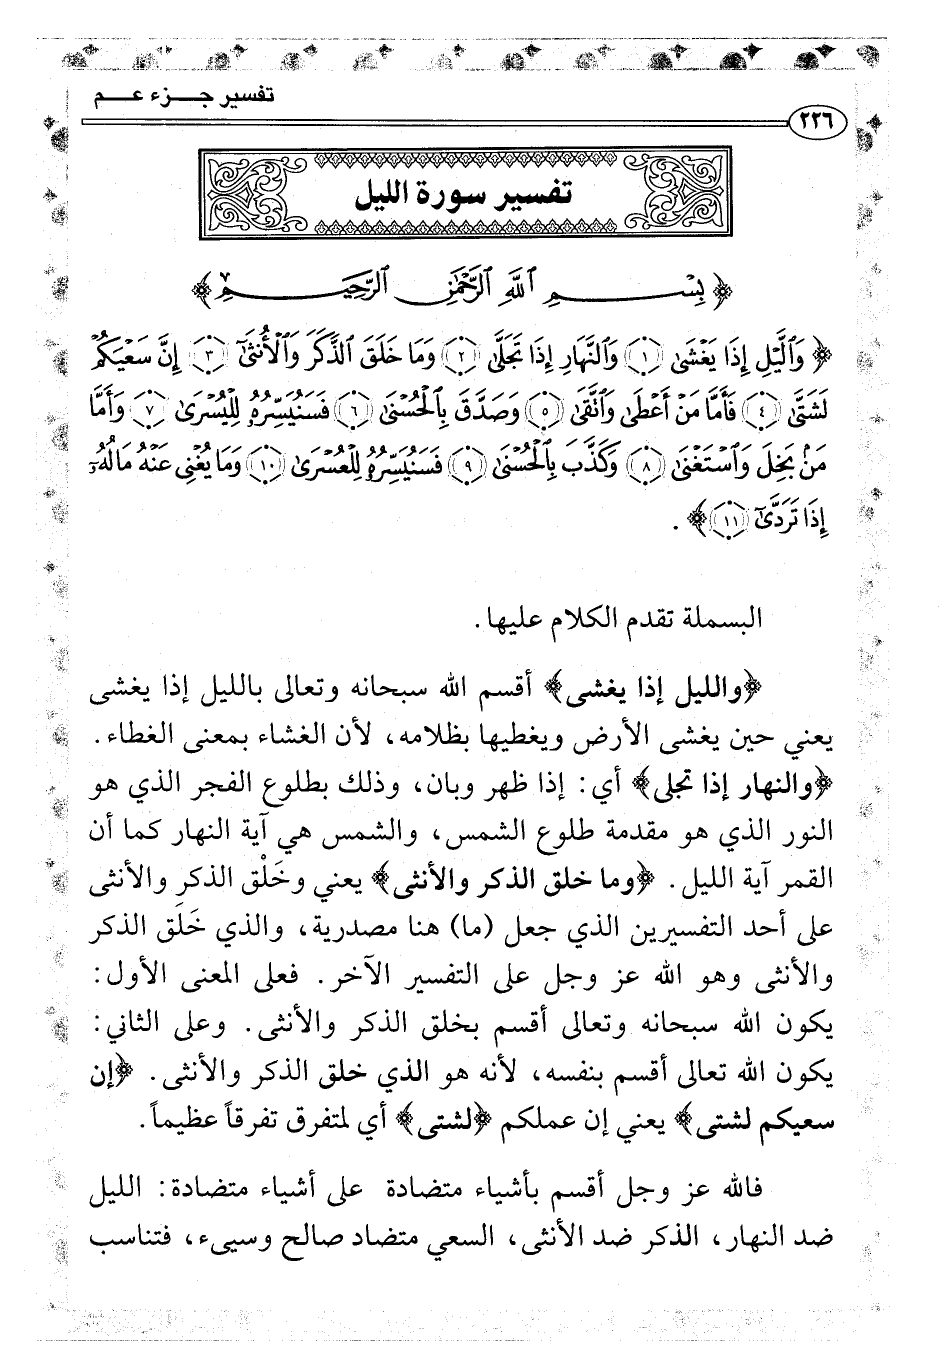 تفسير جـــزء عـــم
٢٢٦
تفسير سورة الليل
﴿بِسْمِ اللَّهِ الرَّحْمَٰنِ الرَّحِيمِ﴾
﴿وَٱلَّيْلِ إِذَا يَغْشَىٰ ﴿١﴾ وَٱلنَّهَارِ إِذَا تَجَلَّىٰ ﴿٢﴾ وَمَا خَلَقَ ٱلذَّكَرَ وَٱلْأُنثَىٰٓ ﴿٣﴾ إِنَّ سَعْيَكُمْ
لَشَتَّىٰ ﴿٤﴾ فَأَمَّا مَنْ أَعْطَىٰ وَٱتَّقَىٰ ﴿٥﴾ وَصَدَّقَ بِٱلْحُسْنَىٰ ﴿٦﴾ فَسَنُيَسِّرُهُۥ لِلْيُسْرَىٰ ﴿٧﴾ وَأَمَّا
مَنۢ بَخِلَ وَٱسْتَغْنَىٰ ﴿٨﴾ وَكَذَّبَ بِٱلْحُسْنَىٰ ﴿٩﴾ فَسَنُيَسِّرُهُۥ لِلْعُسْرَىٰ ﴿١٠﴾ وَمَا يُغْنِى عَنْهُ مَالُهُۥٓ
إِذَا تَرَدَّىٰٓ ﴿١١﴾﴾ .
البسملة تقدم الكلام عليها .
﴿والليل إذا يغشى﴾ أقسم الله سبحانه وتعالى بالليل إذا يغشى
يعني حين يغشى الأرض ويغطيها بظلامه، لأن الغشاء بمعنى الغطاء .
﴿والنهار إذا تجلى﴾ أي: إذا ظهر وبان، وذلك بطلوع الفجر الذي هو
النور الذي هو مقدمة طلوع الشمس، والشمس هي آية النهار كما أن
القمر آية الليل . ﴿وما خلق الذكر والأنثى﴾ يعني وخَلْق الذكر والأنثى
على أحد التفسيرين الذي جعل (ما) هنا مصدرية، والذي خَلَق الذكر
والأنثى وهو الله عز وجل على التفسير الآخر. فعلى المعنى الأول:
يكون الله سبحانه وتعالى أقسم بخلق الذكر والأنثى. وعلى الثاني:
يكون الله تعالى أقسم بنفسه، لأنه هو الذي خلق الذكر والأنثى. ﴿إن
سعيكم لشتى﴾ يعني إن عملكم ﴿لشتى﴾ أي لمتفرق تفرقاً عظيماً.
فالله عز وجل أقسم بأشياء متضادة على أشياء متضادة: الليل
ضد النهار، الذكر ضد الأنثى، السعي متضاد صالح وسيىء، فتناسب